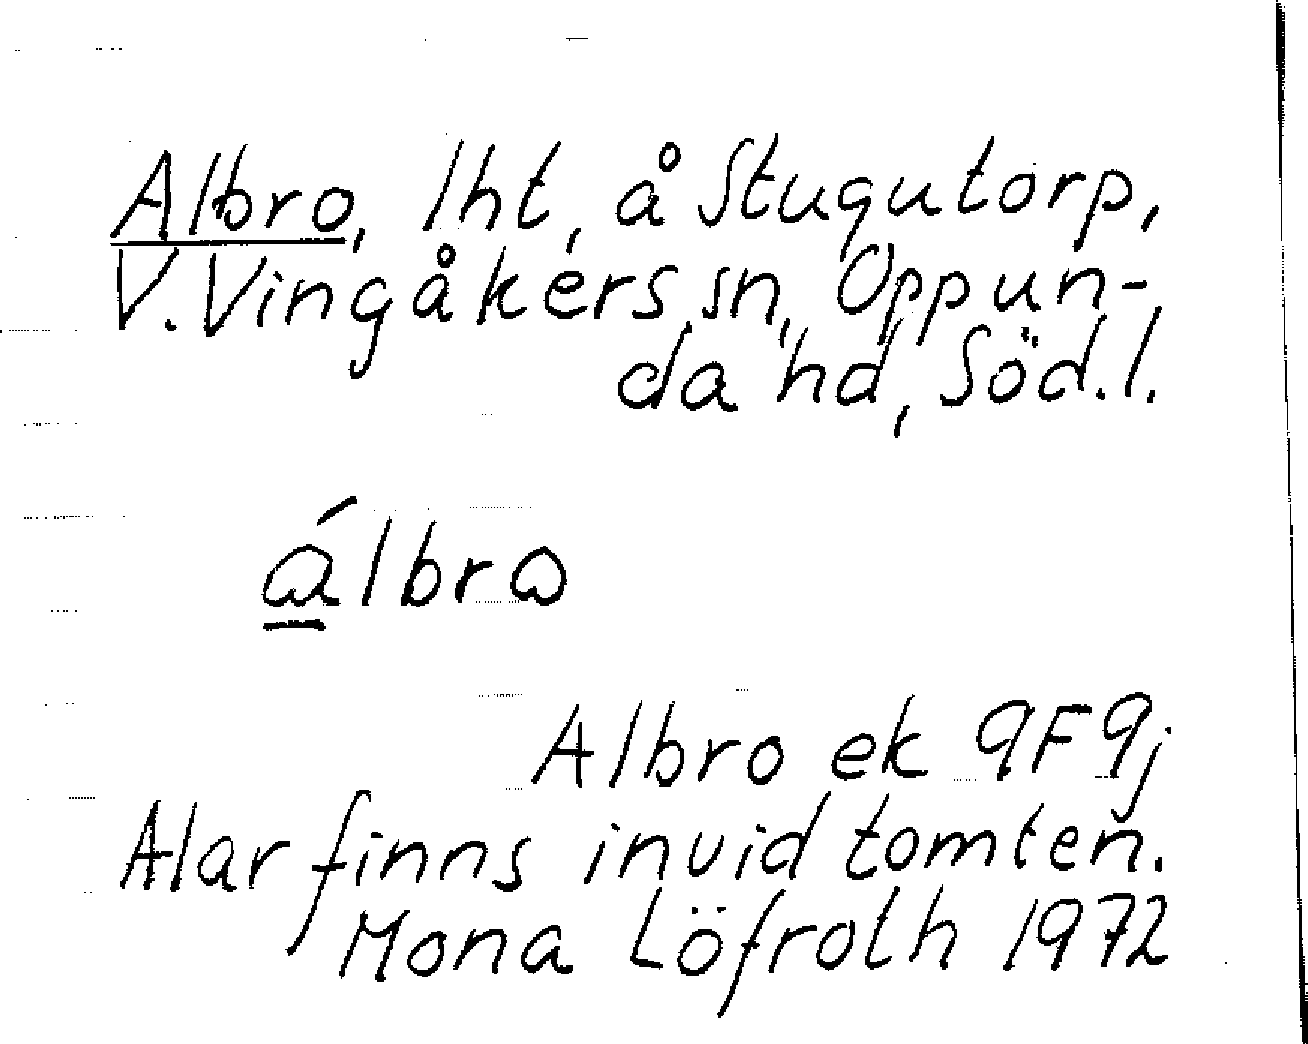 Albro, lht, å Stugutorp,
V. Vingåkers sn, Oppun-
da hd, Söd.l.
álbrω
Albro ek 9F9j
Alar finns invid tomten.
Mona Löfroth 1972